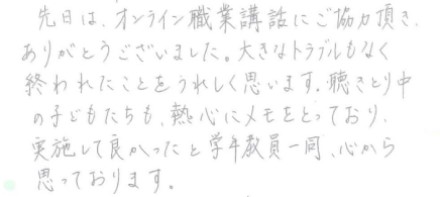 先日は、オンライン職業講話にご協力頂き、
ありがとうございました。大きなトラブルもなく
終われたことをうれしく思います。聴きとり中
の子どもたちも、熱心にメモをとっており、
実施して良かったと学年教員一同、心から
思っております。